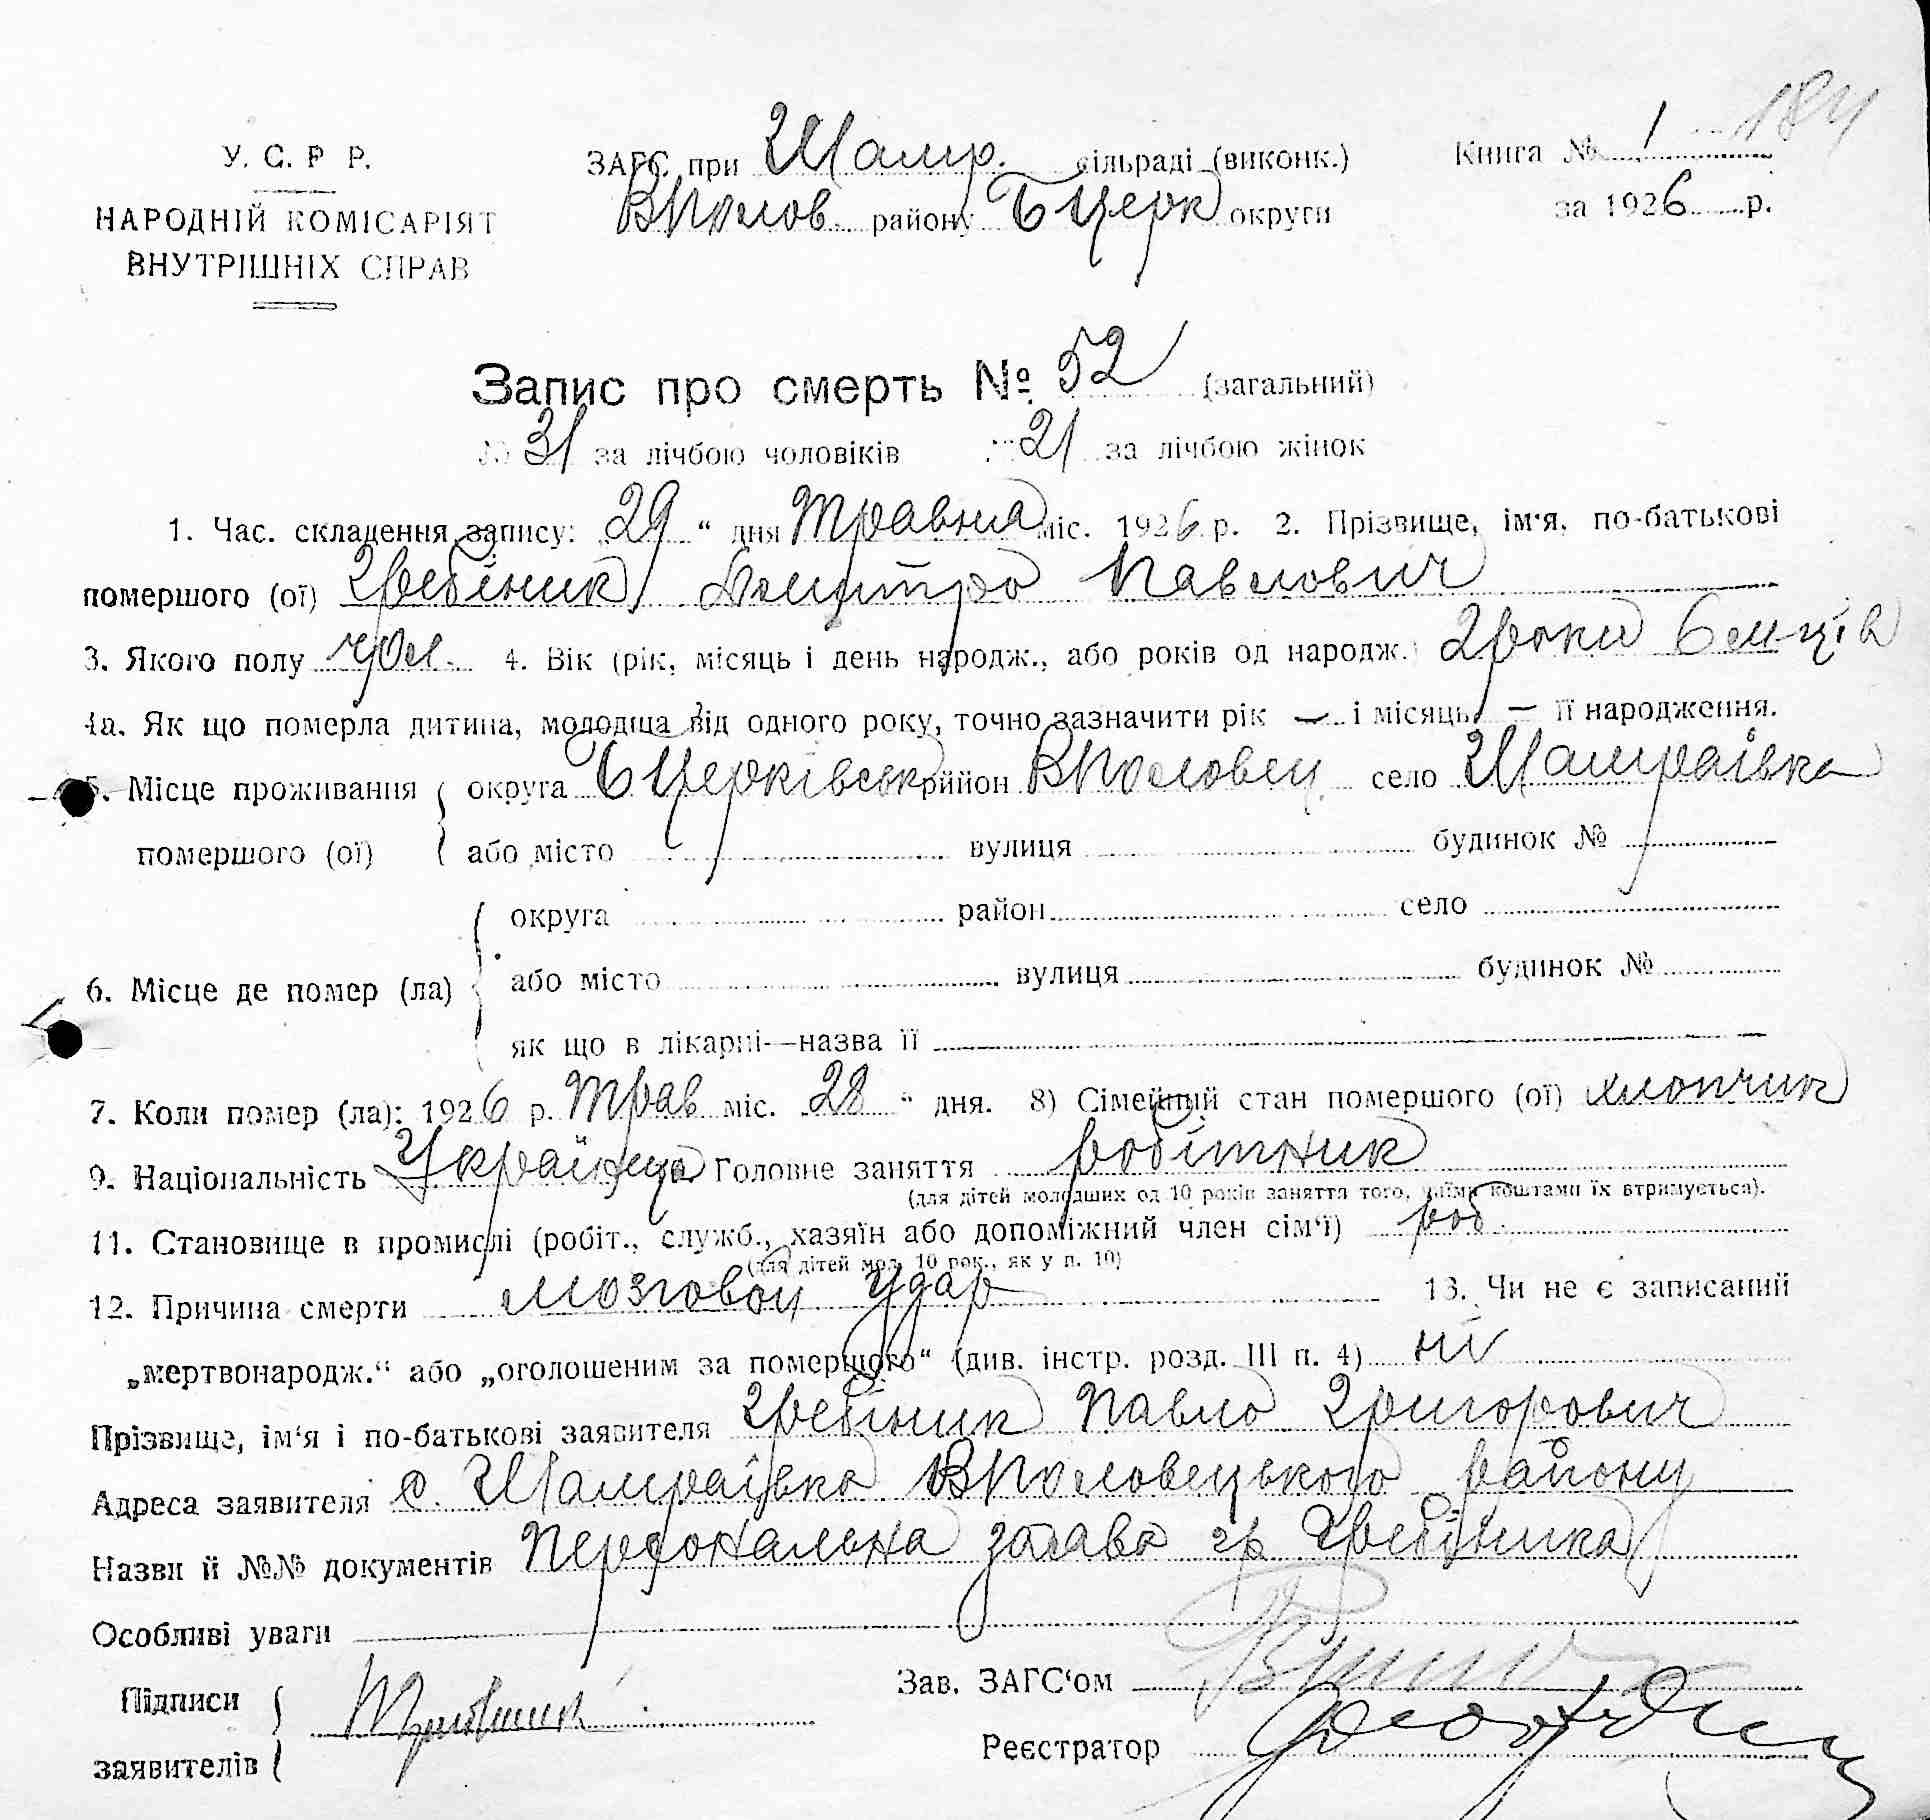 184
У. С. Р Р.
НАРОДНІЙ КОМІСАРІЯТ
ВНУТРІШНІХ СПРАВ
ЗАГС при Шамр. сільраді (виконк.)
ВПолов. району БЦерк округи
Книга № 1
за 1926 р.
Запис про смерть № 52 (загальний)
№ 31 за лічбою чоловіків № 21 за лічбою жінок
1. Час. складення запису: „29“ дня Травня міс. 1926 р. 2. Прізвище, ім'я, по-батькові
помершого (ої) Гребіник Дмитро Павлович
3. Якого полу чол. 4. Вік (рік, місяць і день народж., або років од народж.) 2 роки 6 м-ців
4а. Як що померла дитина, молодша від одного року, точно зазначити рік — і місяць — її народження.
5. Місце проживання округа БЦерківськ рийон ВПоловец. село Шамраївка
помершого (ої) або місто вулиця будинок №
округа район село
6. Місце де помер (ла) або місто вулиця будинок №
як що в лікарні—назва її
7. Коли помер (ла): 1926 р. Трав міс. „28“ дня. 8) Сімейний стан помершого (ої) хлопчик
9. Національність Українця Головне заняття робітник
(для дітей молодших од 10 років заняття того, чиїми коштами їх втримується).
11. Становище в промислі (робіт., служб., хазяїн або допоміжний член сім'ї) роб
(для дітей мол. 10 рок., як у п. 10)
12. Причина смерти мозговой удар 13. Чи не є записаний
„мертвонародж.“ або „оголошеним за померщого“ (див. інстр. розд. III п. 4) ні
Прізвище, ім'я і по-батькові заявителя Гребіник Павло Григорович
Адреса заявителя с. Шамраївка ВПоловецького району
Назви й №№ документів Персональна заява гр Гребіника
Особливі уваги
Підписи
заявителів
Зав. ЗАГС'ом
Реєстратор